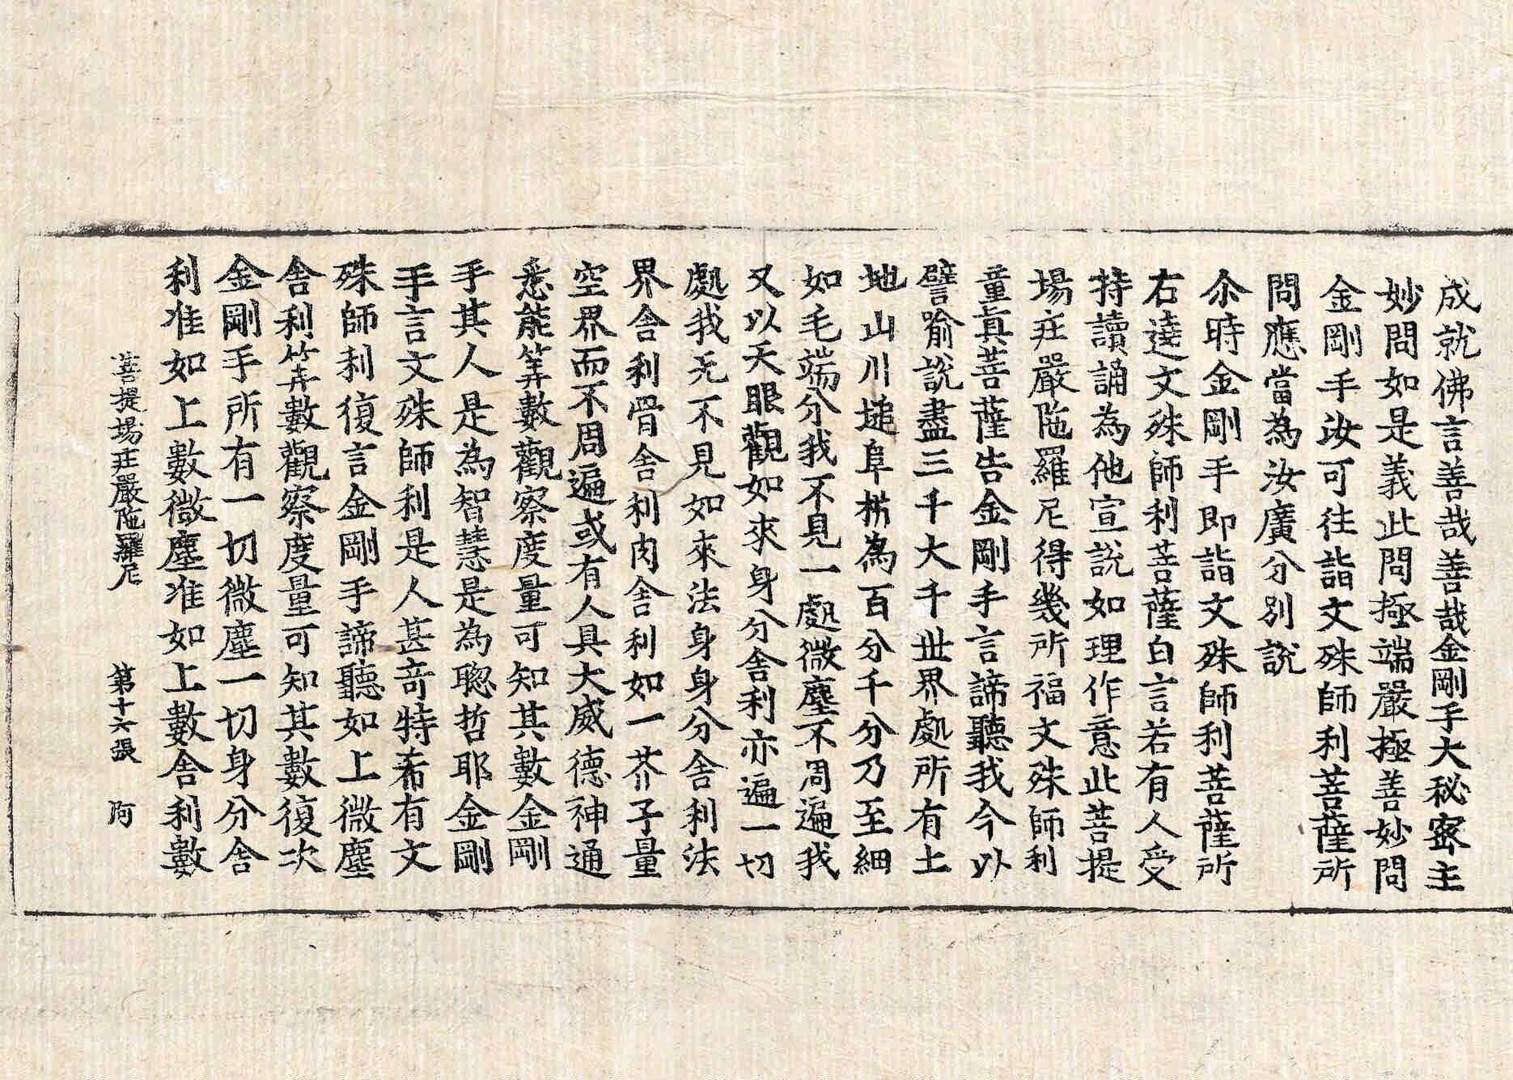 成就佛言善哉善哉金剛手大秘密主
妙問如是義此問極端嚴極善妙問
金剛手汝可往詣文殊師利菩薩所
問應當為汝廣分別說
尒時金剛手即詣文殊師利菩薩所
右遶文殊師利菩薩白言若有人受
持讀誦為他宣說如理作意此菩提
場莊嚴陁羅尼得幾所福文殊師利
童真菩薩告金剛手言諦聽我今以
譬喻說盡三千大千世界處所有土
地山川塠阜析為百分千分乃至細
如毛端分我不見一處微塵不周遍我
又以天眼觀如來身分舍利亦遍一切
處我无不見如來法身身分舍利法
界舍利骨舍利肉舍利如一芥子量
空界而不周遍或有人具大威德神通
悉能筭數觀察度量可知其數金剛
手其人是為智慧是為聰哲耶金剛
手言文殊師利是人甚奇特希有文
殊師利復言金剛手諦聽如上微塵
舍利筭數觀察度量可知其數復次
金剛手所有一切微塵一切身分舍
利准如上數微塵准如上數舍利數
菩提場莊嚴陁羅尼 第十六張 阿